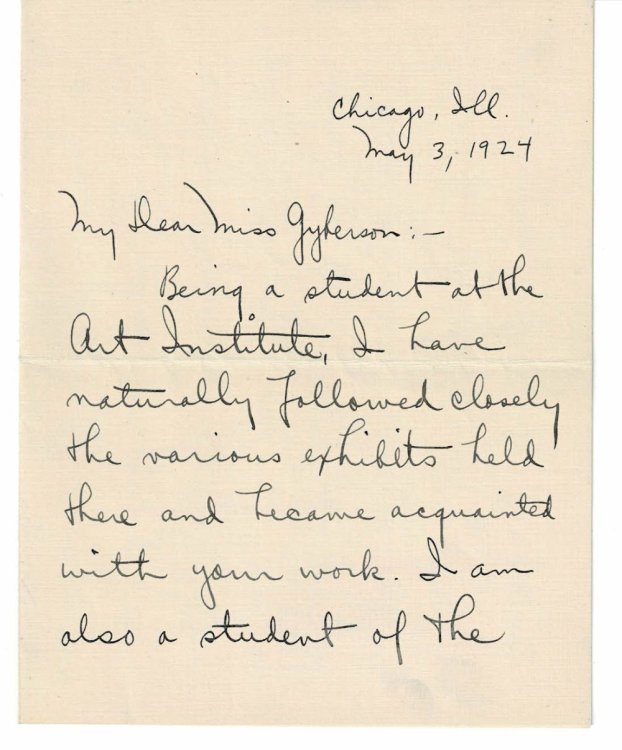 Chicago, Ill.
May 3, 1924
My Dear Miss Gyberson:—
Being a student at the
Art Institute, I have
naturally followed closely
the various exhibits held
there and became acquainted
with your work. I am
also a student of the